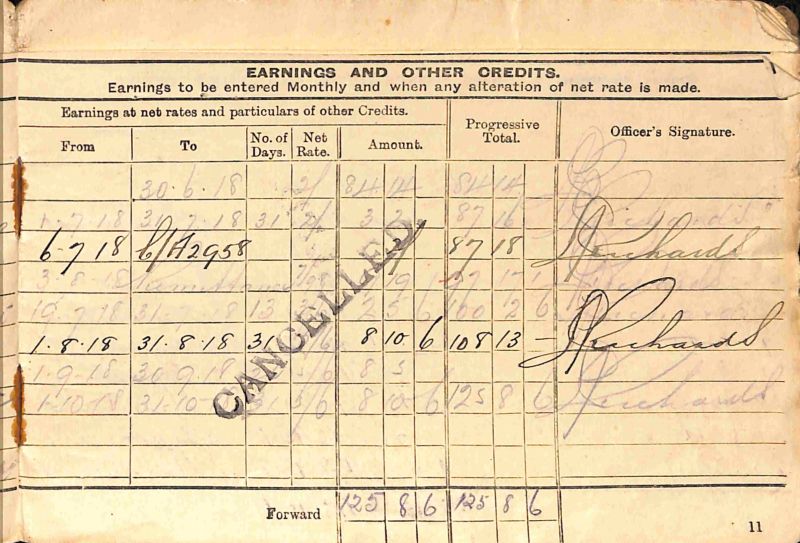 EARNINGS AND OTHER CREDITS.
Earnings to be entered Monthly and when any alteration of net rate is made.
Earnings at net rates and particulars of other Credits.
Progressive Total.
Officer's Signature.
From To No. of Days. Net Rate. Amount.
30·6·18 2/ 84 14 84 14
1·7·18 31·7·18 31 2/ 3 2 87 16
6·7·18 C/A2958 2/ 87 18 Richards
3·8·18
19·7·18 31·7·18 13 2 5 6 100 12 6
1·8·18 31·8·18 31 /6 8 10 6 108 13 - Richards
1·9·18 30·9·18 5/6 8 5
1·10·18 31·10 31 5/6 8 10 6 125 8 6 Richards
CANCELLED.
Forward 125 8 6 125 8 6
11